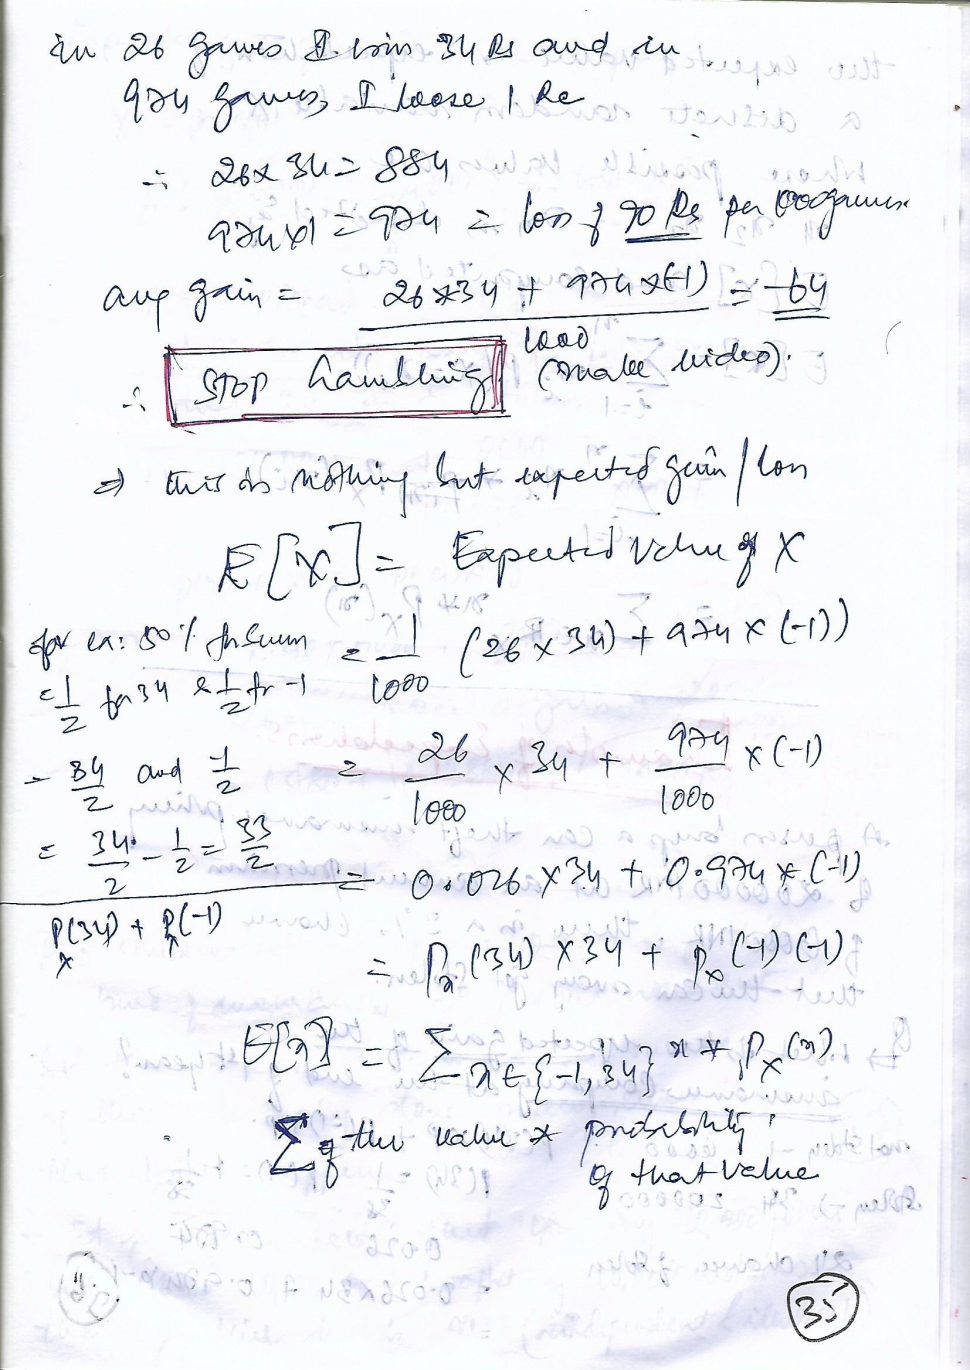 in 26 games I win 34 Rs and in
974 games, I loose 1 Re
∴ 26 x 34 = 884
974 x 1 = 974 = loss of 90 Rs per 1000 games.
avg gain = 26 x 34 + 974 x (-1) = -64
1000
(make video).
∴ STOP Gambling
⇒ this is nothing but expected gain / loss
E[X] = Expected value of X
for ex: 50%
= 1/2 for 34 & 1/2 for -1
= 1/1000 (26 x 34) + 974 x (-1))
= 34/2 and -1/2
= 26/1000 x 34 + 974/1000 x (-1)
= 34/2 - 1/2 = 33/2
= 0.026 x 34 + 0.974 x (-1)
P_x(34) + P_x(-1)
= P_x(34) x 34 + P_x(-1)(-1)
E[x] = Σ x∈{-1, 34} x * P_X(x)
Σ of the value * probability
of that value
35